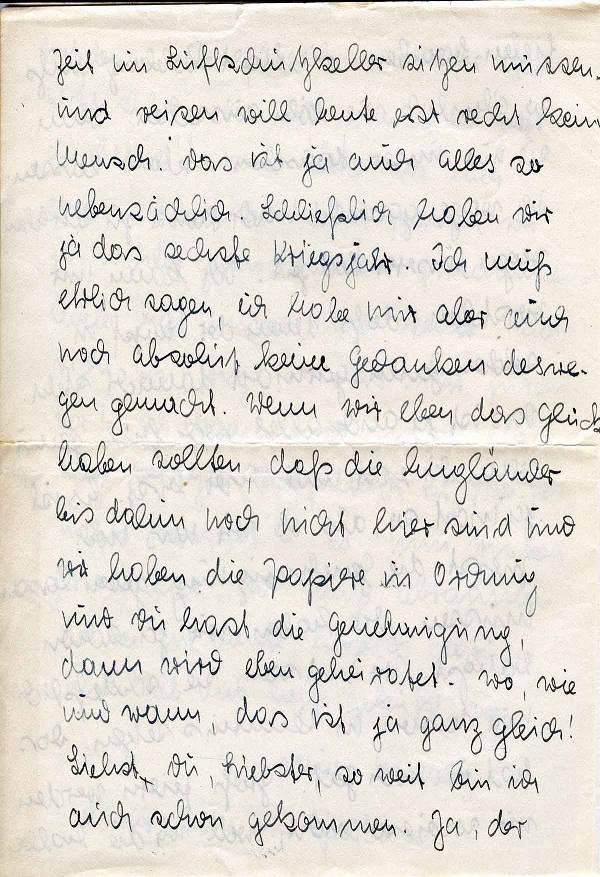 Zeit im Luftschutzkeller sitzen müssen.
und reisen will heute erst recht kein
Mensch. Das ist ja auch alles so
nebensächlich. Schließlich haben wir
ja das sechste Kriegsjahr. Ich muß
ehrlich sagen, ich habe mir aber auch
noch absolut keine Gedanken deswe-
gen gemacht. Wenn wir eben das Glück
haben sollten, daß die Engländer
bis dahin noch nicht hier sind und
wir haben die Papiere in Ordnung
und du hast die Genehmigung,
dann wird eben geheiratet. Wo, wie
und wann, das ist ja ganz gleich!
Siehst du, Liebster, so weit bin ich
auch schon gekommen. Ja, der